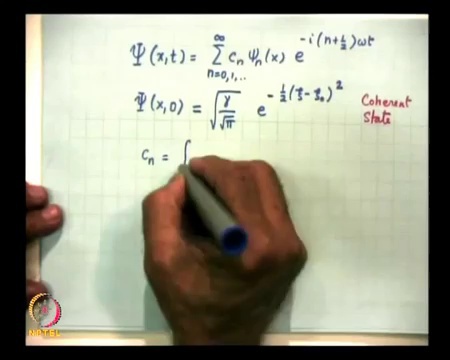 Ψ(x,t) = ∑_{n=0,1,..}^{∞} c_n ψ_n(x) e^{-i(n+½)ωt}
Ψ(x,0) = √(γ/√π) e^{-½(ξ-ξ₀)²} Coherent State
c_n = ∫
NPTEL